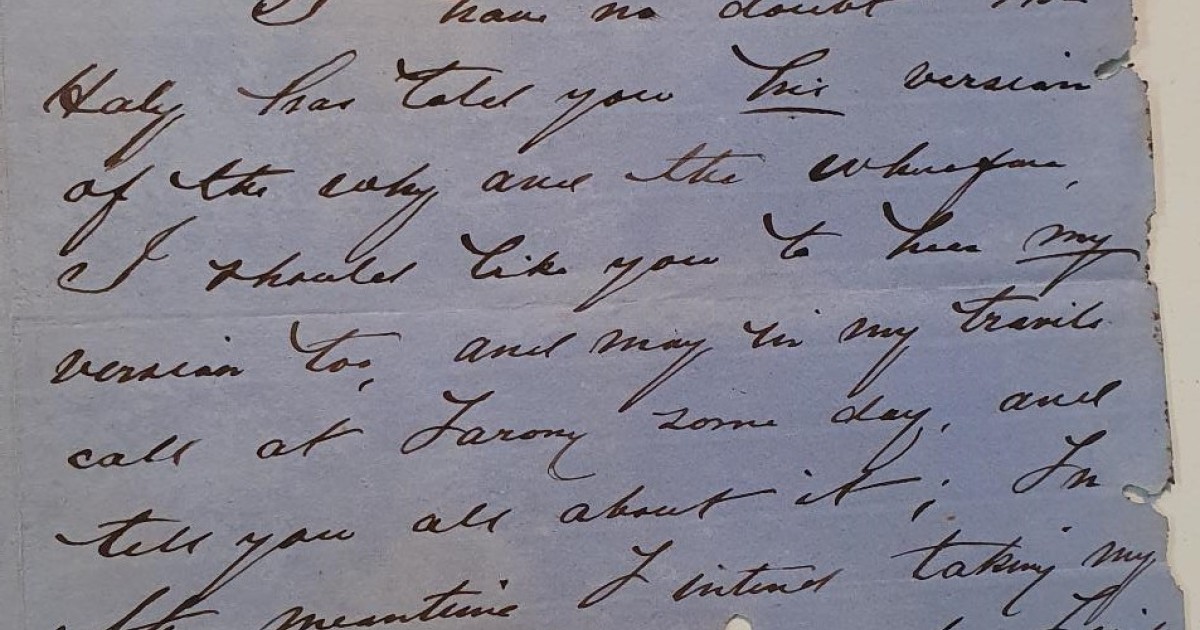 I have no doubt Mr
Haly has told you his version
of the why and the wherefore,
I should like you to hear my
version too, and may in my travels
call at Tarong some day, and
tell you all about it; In
the meantime I intend taking my